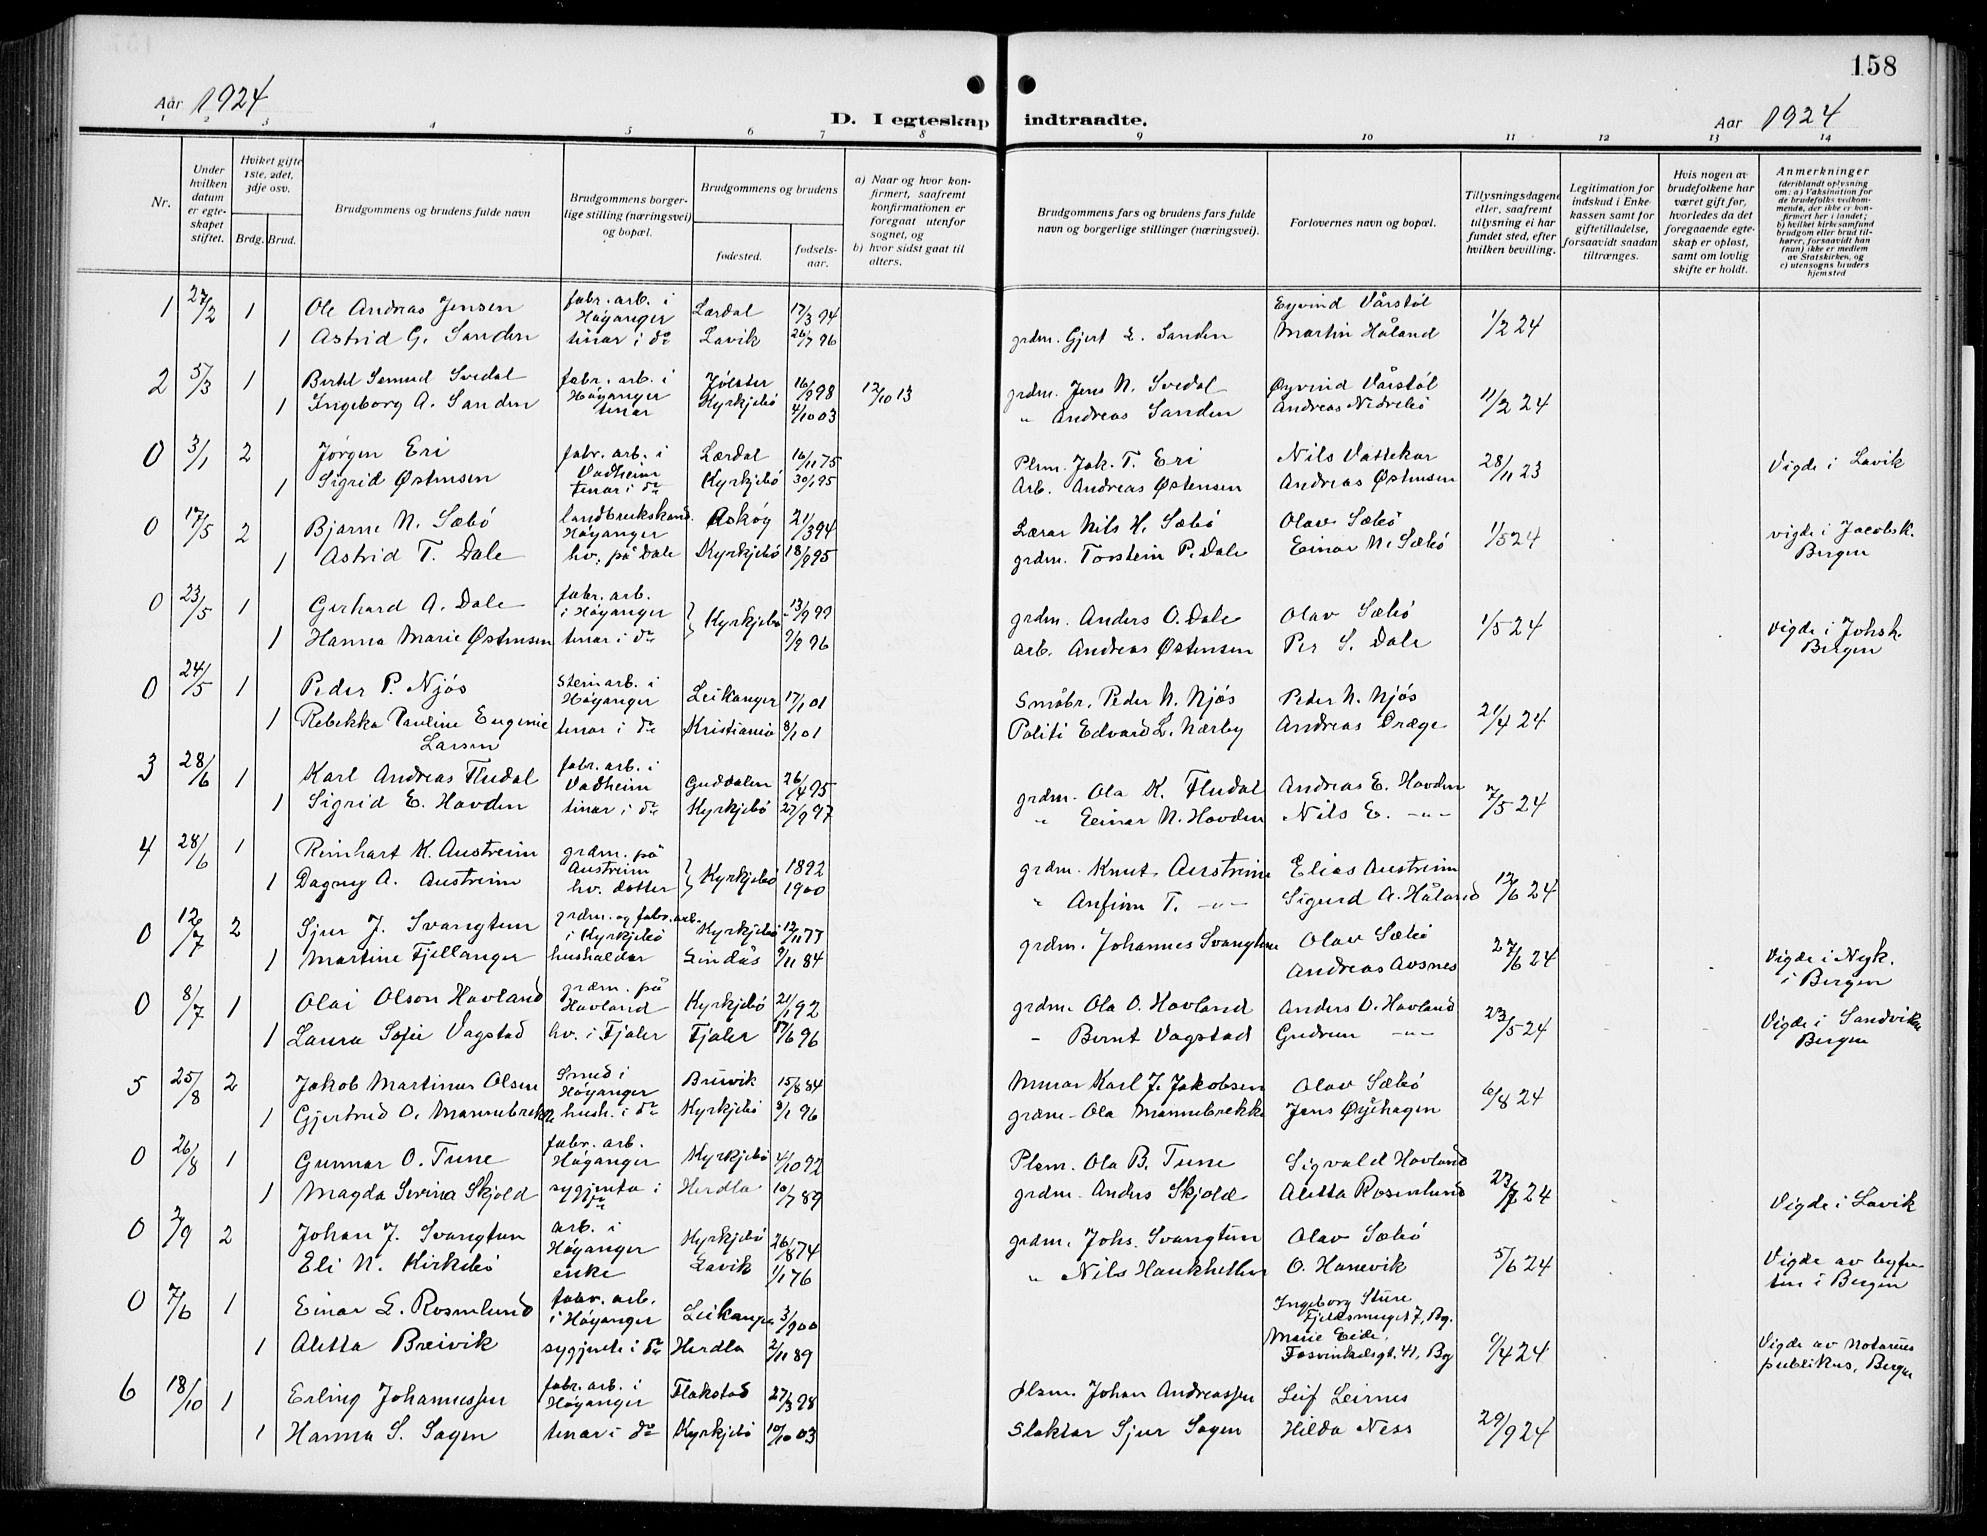 158
Aar 1924
D. I egteskap indtraadte.
Aar 1924
1 2 3 4 5 6 7 8 9 10 11 12 13 14
Nr.
Under hvilken datum er egteskapet stiftet.
Hvilket gifte 1ste, 2det, 3dje osv.
Brdg. Brud.
Brudgommens og brudens fulde navn
Brudgommens borgerlige stilling (næringsvei) og bopæl.
Brudgommens og brudens
fødested.
fødselsaar.
a) Naar og hvor konfirmert, saafremt konfirmationen er foregaat utenfor sognet, og
b) hvor sidst gaat til alters.
Brudgommens fars og brudens fars fulde navn og borgerlige stillinger (næringsvei).
Forlovernes navn og bopæl.
Tillysningsdagene eller, saafremt tillysning ei har fundet sted, efter hvilken bevilling.
Legitimation for indskud i Enkekassen samt for giftetilladelse, forsaavidt saadan tiltrænges.
Hvis nogen av brudefolkene har været gift før, hvorledes da det foregaaende egteskap er opløst, samt om lovlig skifte er holdt.
Anmerkninger (deriblandt oplysning om: a) Vaksination for de brudefolks vedkommende, der ikke er konfirmert her i landet; b) hvilket kirkesamfund brudgom eller brud tilhører, forsaavidt han (hun) ikke er medlem av Statskirken, og c) utensogns bruders hjemsted
1 27/2 1 Ole Andreas Jensen fabr. arb. i Høyanger Lærdal 17/3 94 Eyvind Vårstöl
1 Astrid G. Sanden tenar i do Lavik 26/7 96 grdm. Gjert L. Sanden Martin Håland 1/2 24
2 5/3 1 Bertel Semund Svedal fabr. arb. i Høyanger Jölster 16/9 98 12/10 13 grdm. Jens N. Svedal Øyvind Vårstöl
1 Ingeborg A. Sanden tenar Kyrkjebö 4/10 03 " Andreas Sanden Andreas Nedrebö 11/2 24
0 3/1 2 Jørgen Eri fabr. arb. i Vadheim Lærdal 16/11 75 Plsm. Jak. T. Eri Nils Vattekar
1 Sigrid Østensen tenar i do Kyrkjebö 30/1 95 Arb. Andreas Østensen Andreas Østensen 28/11 23 Vigde i Lavik
0 17/5 2 Bjarne N. Sæbö landbrukskand. Høyanger Askög 21/3 94 Lærar Nils H. Sæbö Olav Sæbö
1 Astrid T. Dale hv. på Dale Kyrkjebö 18/9 95 grdm. Torstein P. Dale Einar N. Sæbö 1/5 24 vigde i Jacobsk. Bergen
0 23/5 1 Gerhard A. Dale fabr. arb. i Høyanger Kyrkjebö 13/9 99 grdm. Anders O. Dale Olav Sæbö
1 Hanna Marie Østensen tenar i do 9/9 96 arb. Andreas Østensen Per S. Dale 1/5 24 Vigde i Johsk. Bergen
0 24/5 1 Peder P. Njøs steinarb. i Høyanger Leikanger 17/1 01 Småbr. Peder N. Njøs Peder N. Njøs
1 Rebekka Pauline Eugenie Larsen tenar i do Kristiania 8/1 01 Politi Edvard L. Nærby Andreas Dræge 21/4 24
3 28/6 1 Karl Andreas Fludal fabr. arb. i Vadheim Guddalen 26/4 95 grdm. Ola K. Fludal Andreas E. Hovden
1 Sigrid E. Hovden tenar i do Kyrkjebö 27/9 97 " Eeinar N. Hovden Nils E. -"- 7/5 24
4 28/6 1 Reinhart K. Austreim grdm. på Austreim Kyrkjebö 1892 grdm. Knut Austreim Elias Austreim
1 Dagny A. Austreim hv. dotter 1900 " Anfinn T. -"- Sigurd A. Håland 12/6 24
0 12/7 2 Sjur J. Svangtun grdm. og fabr. arb. i Kyrkjebö Kyrkjebö 12/11 77 grdm. Johannes Svangtun Olav Sæbö
1 Martine Fjellanger hushaldar Lindås 9/11 84 Andreas Avsnes 27/6 24 Vigde i Nyk. i Bergen
0 8/7 1 Olai Olson Hovland grdm. på Hovland Kyrkjebö 21/1 92 grdm. Ola O. Hovland Anders O. Hovland
1 Laura Sofie Vagstad hv. i Fjaler Fjaler 17/6 96 - Bernt Vagstad Gudrun -"- 23/5 24 Vigde i Sandviken Bergen
5 25/8 2 Jakob Martinus Olsen Smed i Høyanger Brüvik 15/8 84 Murar Karl J. Jakobsen Olav Sæbö
1 Gjertrud O. Mannebrekke hush. i do Kyrkjebö 8/1 96 grdm. Ola Mannebrekke Jens Øyehagen 6/8 24
0 26/8 1 Gunnar O. Tune fabr. arb. Høyanger Kyrkjebö 4/10 92 Plsm. Ola B. Tune Sigvald Hovland
1 Magda Severina Skjold sygjenta i do Herdla 10/7 89 grdm. Anders Skjold Aletta Rosenlund 23/7 24 Vigde i Lavik
0 2/9 2 Johan J. Svangtun arb. i Høyanger Kyrkjebö 26/8 74 grdm. Johs. Svangtun Olav Sæbö
Eli N. Kirkebö enke Lavik 1/1 76 " Nils Haukhellen O. Hanevik 5/6 24 Vigde av byfuten i Bergen
0 7/6 1 Einar L. Rosenlund fabr. arb. i Høyanger Leikanger 3/9 00 Ingeborg Sture Fjeldsmuget 7, Bg.
1 Aletta Breivik sygjente i do Herdla 2/11 89 Marie Eide, Fosvinkelsgt. 41, Bg 9/4 24 Vigde av notarius publikus, Bergen
6 18/10 1 Erling Johannessen fabr. arb. i Høyanger Flakstad 27/3 98 plsm. Johan Andreassen Leif Leirnes
1 Hanna S. Sagen tenar i do Kyrkjebö 10/10 03 Slaktar Sjur Sagen Hilda Ness 29/9 24